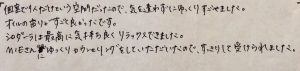 個室で1人だけという空間だったので、気を遣わずにゆっくりすごせました。
オイルの香りがすごく良かったです。
シロダーラは最高に気持ち良くリラックスできました。
ゆっくりカウンセリングをしていただいたので、すっきりして受けられました。